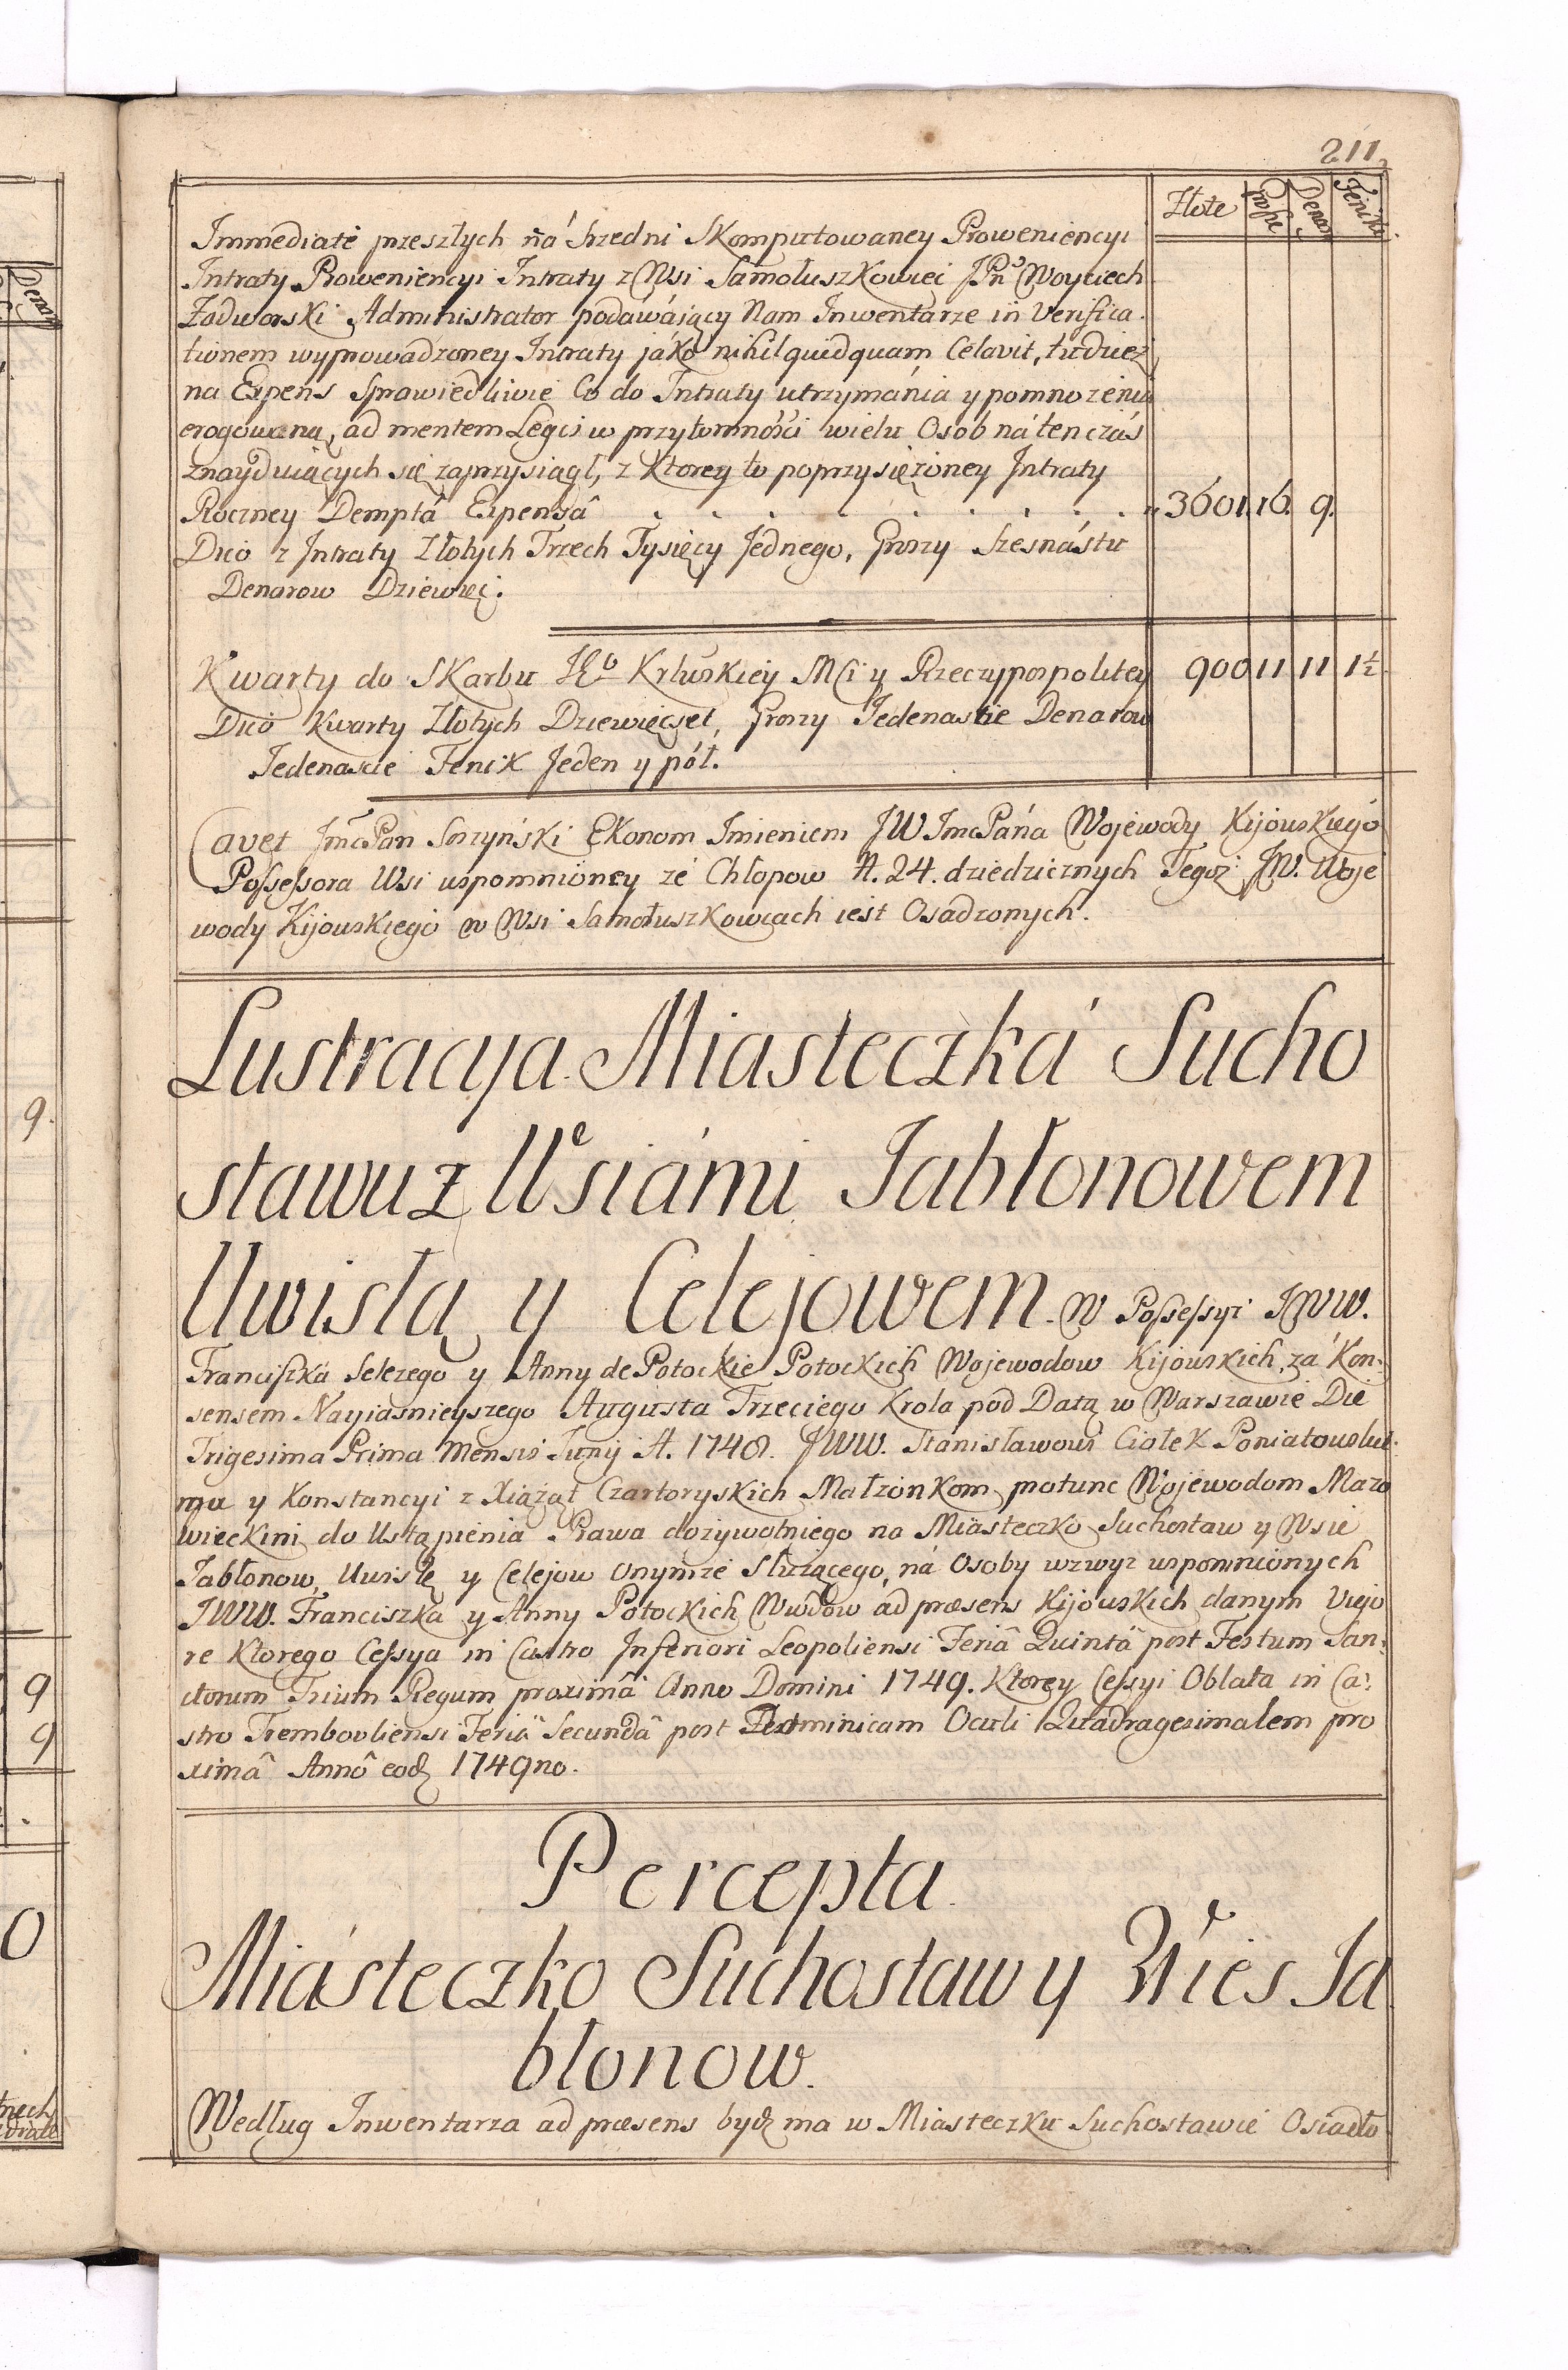 211.
Złote Grosze Denar Feniki
Immediaté przeszłych ná Szedni Skomputowaney Proweniencyi
Intraty Proweniencyi Intraty z Wsi Samołuszkowiec JPn Woyciech
Zadworski Administrator podawáiący Nam Inwentarze in Verifica-
tionem wyprowadzoney Intraty jáko nihil quidquam Celavit, tudziez
na Expens Sprawiedliwie Co do Intraty utrzymánia y pomnozenia
erogowaną, ad mentem Legis w przytomności wielu Osób nátenczás
znayduiących się zaprzysiągł, z ktorey to poprzysięzoney Intraty
Roczney Demptâ Expensâ . . . . . . . . . 3601. 16. 9.
Dico z Intraty Złotych Trzech Tysięcy Jednego, Groszy Szesnástu
Denarow Dziewięć.
Kwarty do Skarbu Krlewskiey Mci y Rzeczypospolitey 900 11 11 1½
Dico Kwarty Złotych Dziewięcset, Groszy Jedenascie Denarow
Jedenascie Fenik Jeden y pół.
Cavet JmcPan Soszyński Ekonom Imieniem JW ImcPána Wojewody Kijowskiego
Possessora Wsi wspomnioney ze Chłopow N. 24. dziedzicznych Tegoz JW. Woje
wody Kijowskiego w Wsi Samołuszkowcach iest Osadzonych.
Lustracya Miasteczká Sucho
stawu z Wsiámi Jabłonowem
Uwisłą y Celejowem. w Possessyi JWW.
Franciszka Selezego y Anny de Potockie Potockich Wojewodow Kijowskich, zá Kon-
sensem Nayiasnieyszego Augusta Trzeciego Krola pod Datą w Warszawie Die
Trigesima Prima Mensis Junij A. 1748. JWW. Stanisławowi Ciołek Poniatowskie-
mu y Konstancyi z Xiąząt Czartoryskich Małzonkom protunc Wojewodom Mazo
wieckim do Ustąpienia Prawa dozywotniego na Miásteczko Suchostaw y Wsie
Jabłonow, Uwisłę y Celejow Onymze Słuzącego, ná Osoby wzwyz wspomnionych
JWW. Franciszka y Anny Potockich Wwdow ad præsens Kijowskich danym Vigo
re Ktorego Cessya in Castro Inferiori Leopoliensi Feriâ Quintâ post Festum San-
ctorum Trium Regum proximâ Anno Domini 1749. Ktorey Cessyi Oblata in Ca-
stro Trembovliensi Feriâ Secundâ post Dominicam Oculi Quadragesimalem pro
ximâ Annô eod 1749no.
Percepta.
Miásteczko Suchostaw y Wies Ja
błonow.
Według Inwentarza ad præsens bydz ma w Miasteczku Suchostawie Osiadło-